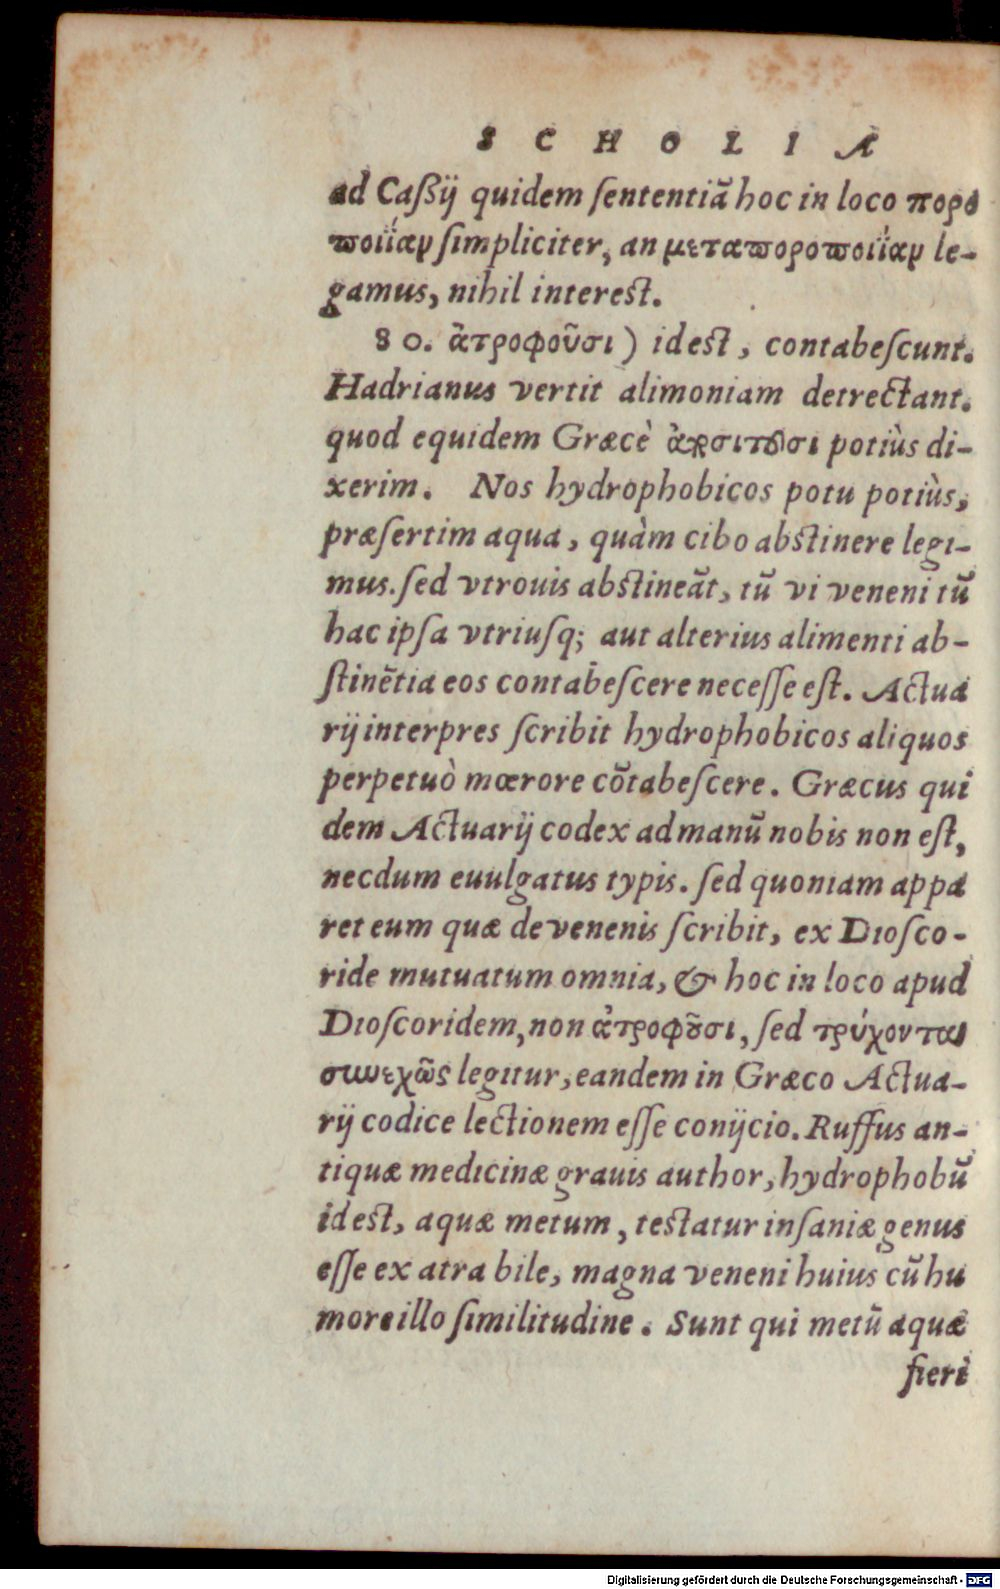 S C H O L I A
ad Caßij quidem ſententiã hoc in loco πορο
ποιΐαν ſimpliciter, an μεταποροποιΐαν le-
gamus, nihil interest.
80. ἀτροφοῦσι) idest, contabeſcunt.
Hadrianus vertit alimoniam detrectant.
quod equidem Græcè ἀποσιτοῦσι potiùs di-
xerim. Nos hydrophobicos potu potiùs,
præſertim aqua, quàm cibo abstinere legi-
mus. ſed vtrouis abstineãt, tũ vi veneni tũ
hac ipſa vtriuſq; aut alterius alimenti ab-
ſtinẽtia eos contabeſcere neceſſe eſt. Actua
rij interpres ſcribit hydrophobicos aliquos
perpetuò mœrore cõtabeſcere. Græcus qui
dem Actuarij codex ad manũ nobis non eſt,
necdum euulgatus typis. ſed quoniam appa
ret eum quæ de venenis ſcribit, ex Dioſco-
ride mutuatum omnia, & hoc in loco apud
Dioſcoridem, non ἀτροφοῦσι, ſed τρύχονται
συνεχῶς legitur, eandem in Græco Actua-
rij codice lectionem eſſe conijcio. Ruffus an-
tiquæ medicinæ grauis author, hydrophobũ
idest, aquæ metum, testatur inſaniæ genus
eſſe ex atra bile, magna veneni huius cũ hu
more illo ſimilitudine. Sunt qui metũ aquæ
fieri
Digitalisierung gefördert durch die Deutsche Forschungsgemeinschaft - DFG